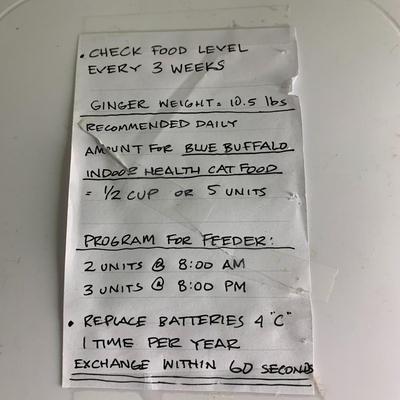 • CHECK FOOD LEVEL
EVERY 3 WEEKS
GINGER WEIGHT = 10.5 lbs
RECOMMENDED DAILY
AMOUNT FOR BLUE BUFFALO
INDOOR HEALTH CAT FOOD
= 1/2 CUP OR 5 UNITS
PROGRAM FOR FEEDER:
2 UNITS @ 8:00 AM
3 UNITS @ 8:00 PM
• REPLACE BATTERIES 4 "C"
1 TIME PER YEAR
EXCHANGE WITHIN 60 SECONDS